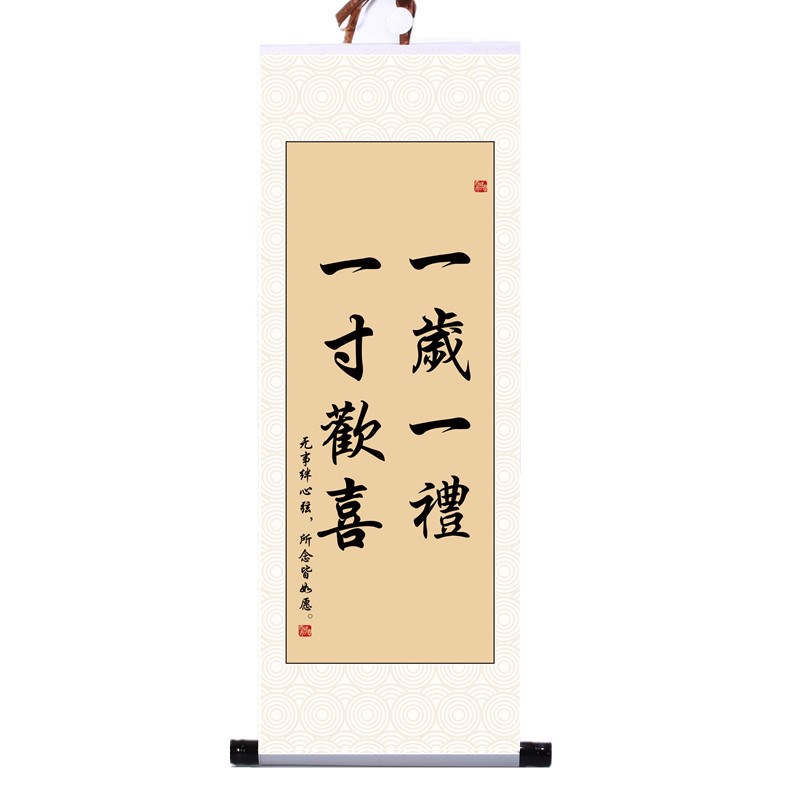 一歲一禮
一寸歡喜
无事绊心弦，所念皆如愿。